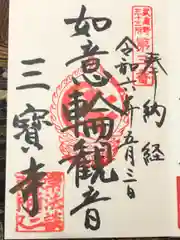 奉納経
武蔵野
三十三所
第三番
令和六年五月三日
如意輪観音
三寳寺